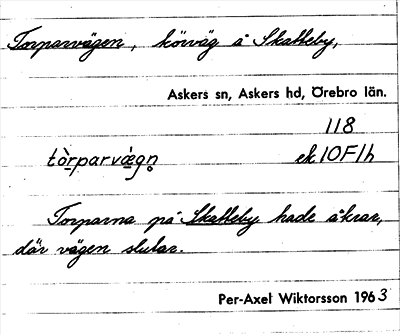 Torparvägen, körväg å Skatteby,
Askers sn, Askers hd, Örebro län.
118
tòrparvä̀gn̥ ek 10F1h
Torparna på Skatteby hade åkrar,
där vägen slutar.
Per-Axel Wiktorsson 1963